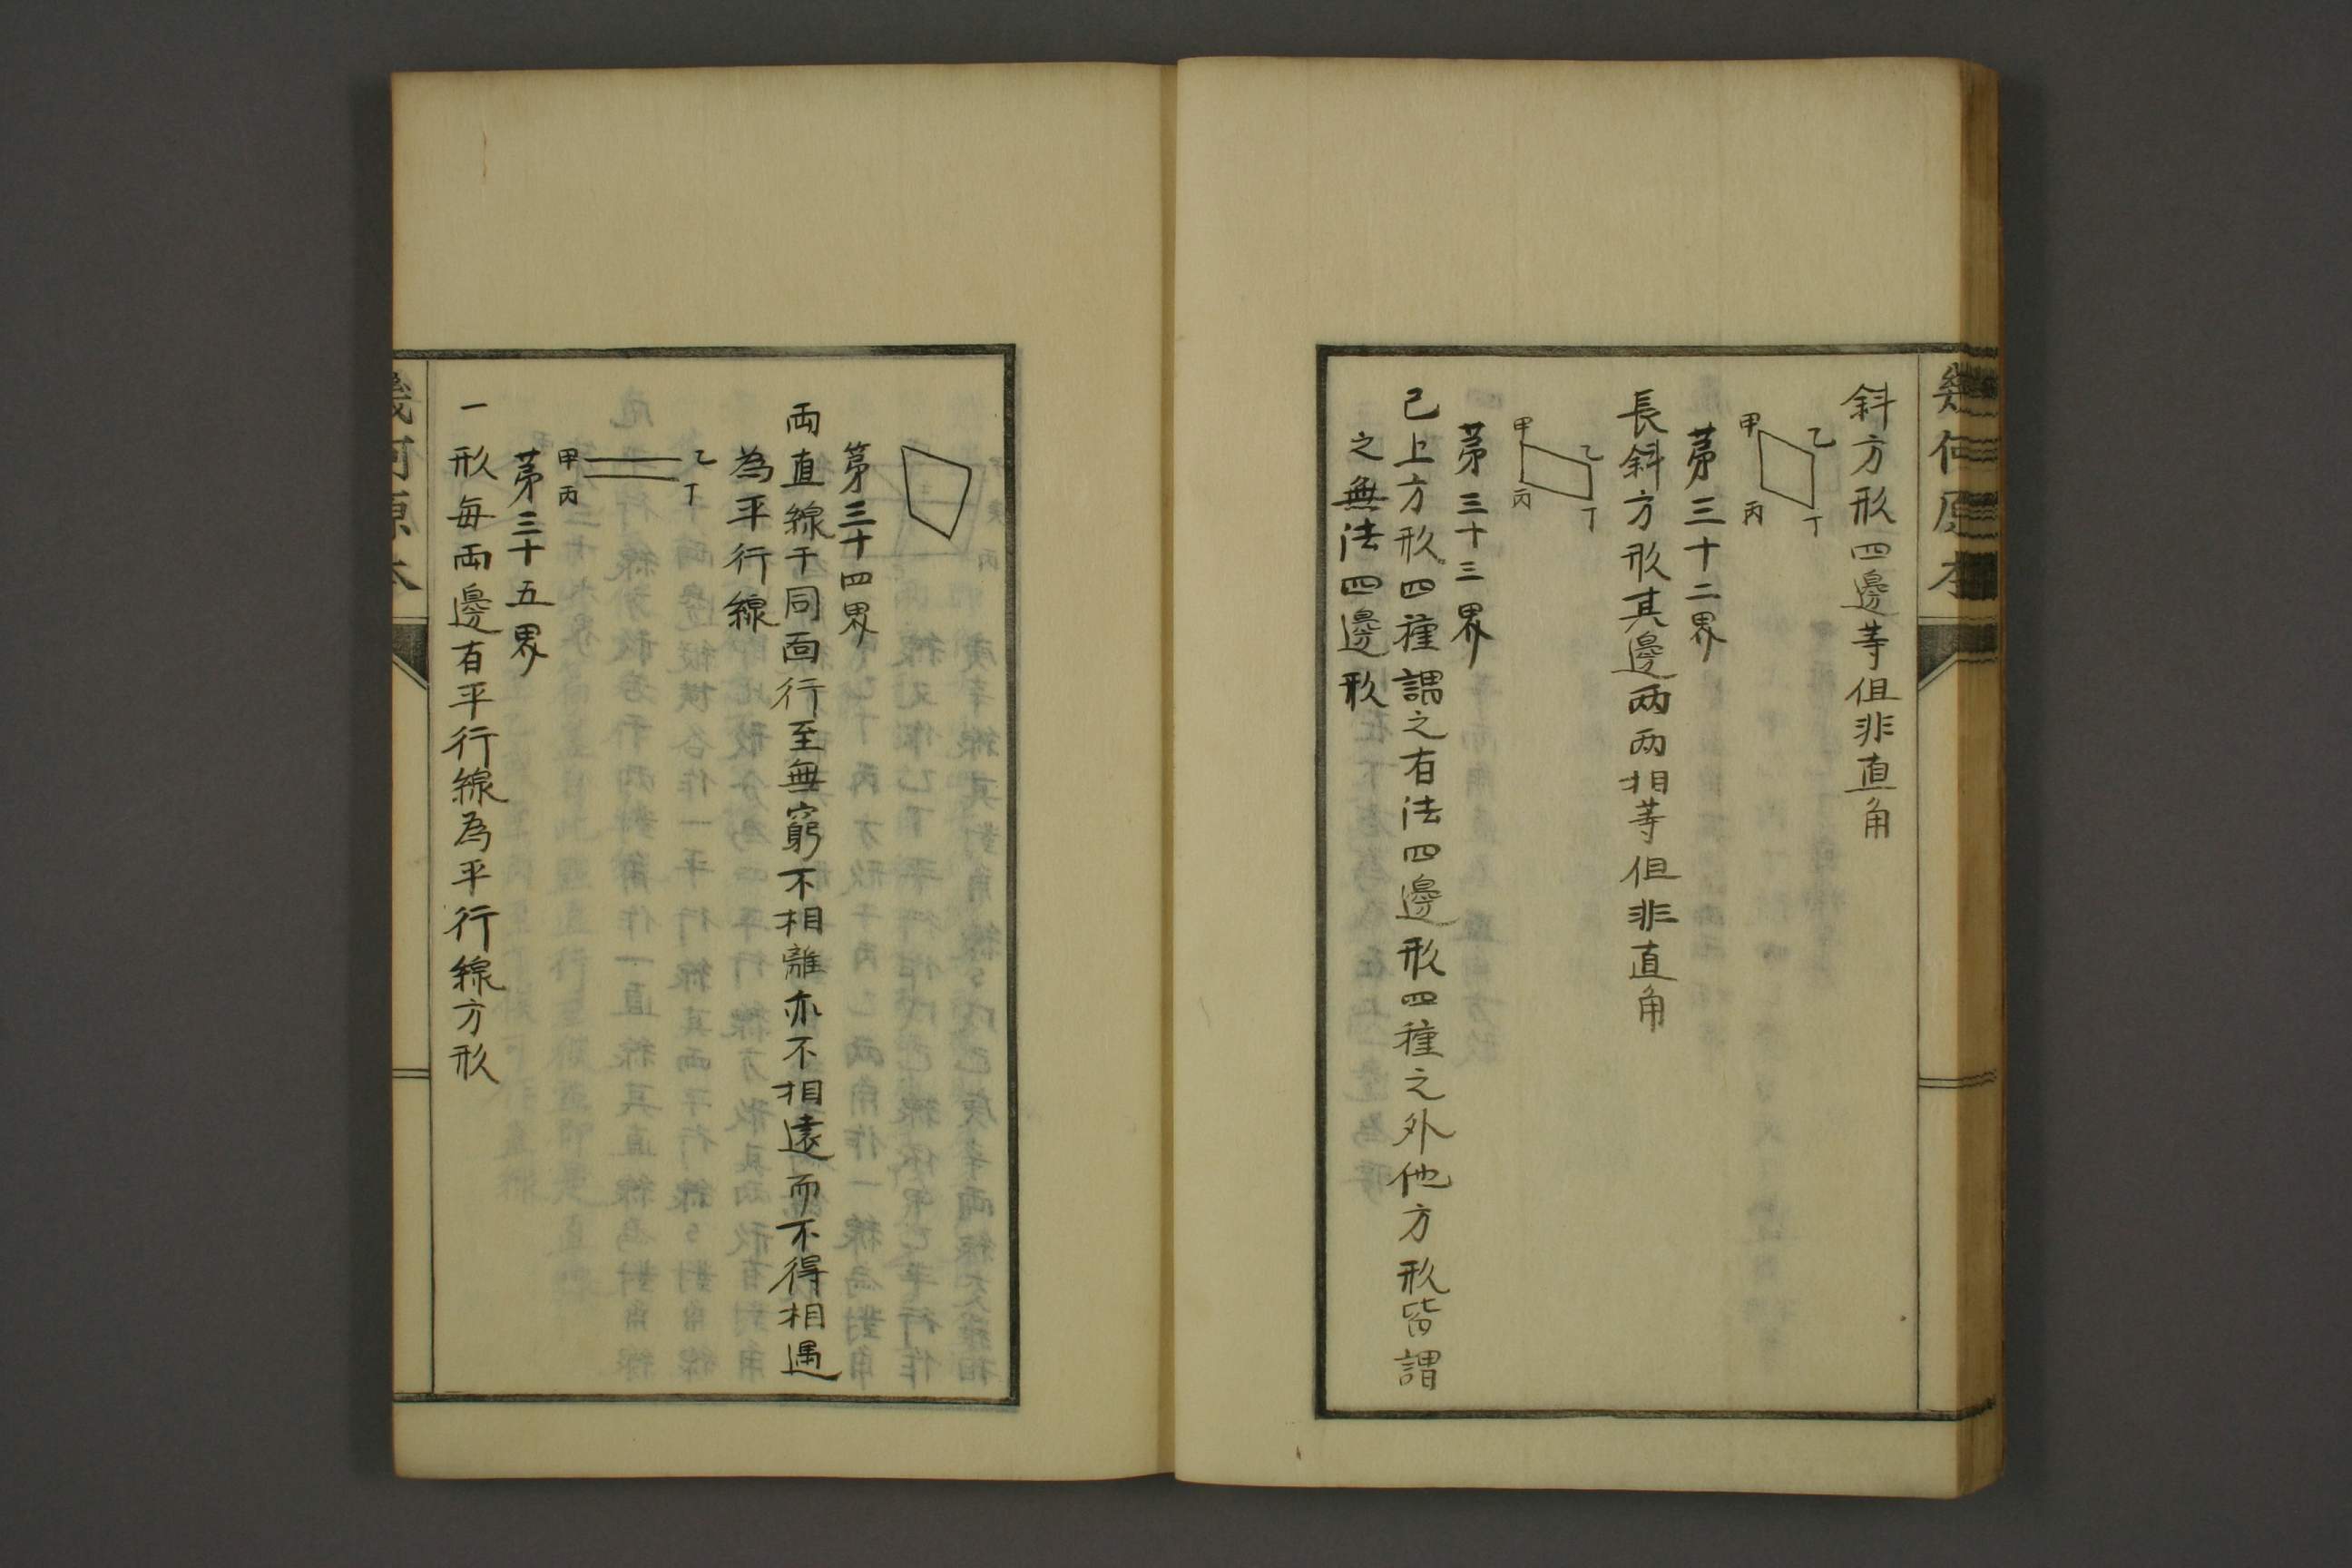 幾何原本
斜方形四邊等但非直角
甲
乙
丙
丁
第三十二界
長斜方形其邊两两相等但非直角
甲
乙
丙
丁
第三十三界
已上方形四種謂之有法四邊形四種之外他方形皆謂
之無法四邊形
第三十四界
両直線于同面行至無窮不相離亦不相遠而不得相遇
為平行線
乙
丁
甲
丙
第三十五界
一形每両邊有平行線為平行線方形
幾何原本